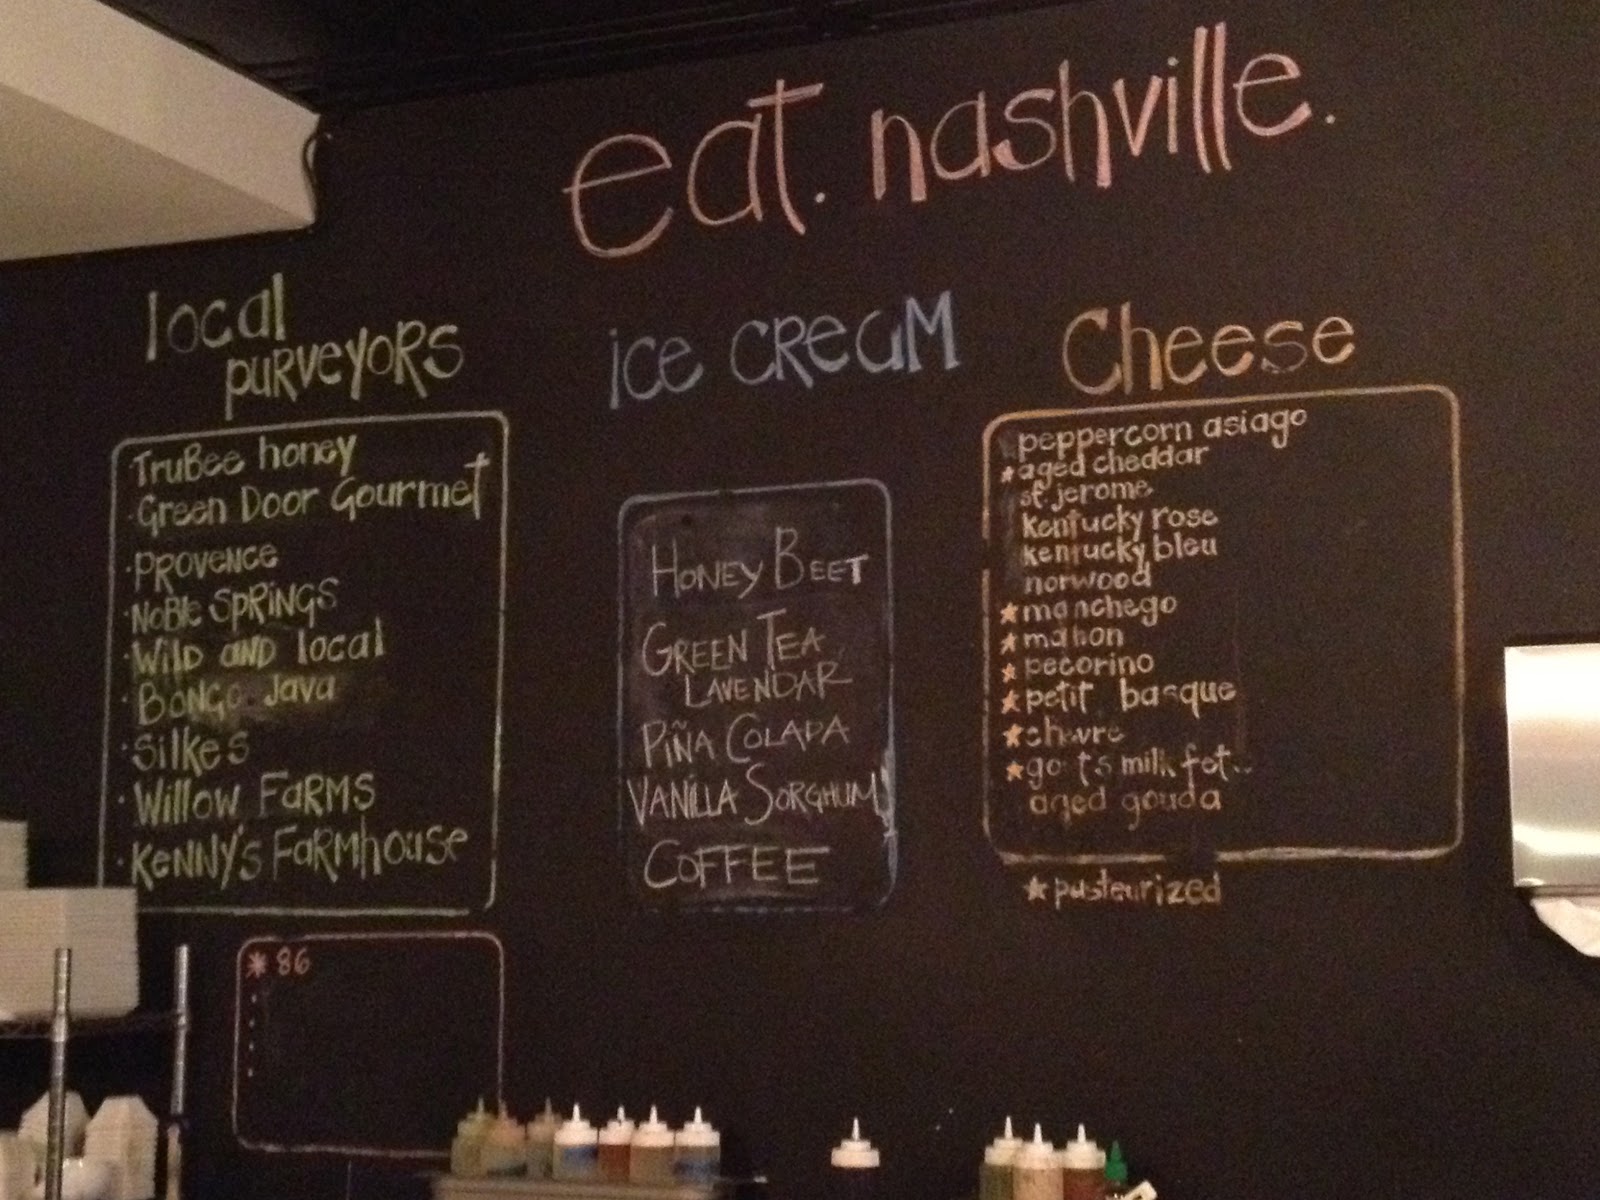 eat. nashville.
local
purveyors
· TruBee honey
· Green Door Gourmet
· Provence
· Noble Springs
· Wild and local
· Bongo Java
· Silkes
· Willow Farms
· Kenny's Farmhouse
* 86
ice cream
Honey Beet
Green Tea
Lavendar
Piña Colada
Vanilla Sorghum
Coffee
Cheese
peppercorn asiago
★ aged cheddar
st. jerome
kentucky rose
kentucky bleu
norwood
★ manchego
★ mahon
★ pecorino
★ petit basque
★ chevre
★ go ts milk fet
aged gouda
★ pasteurized